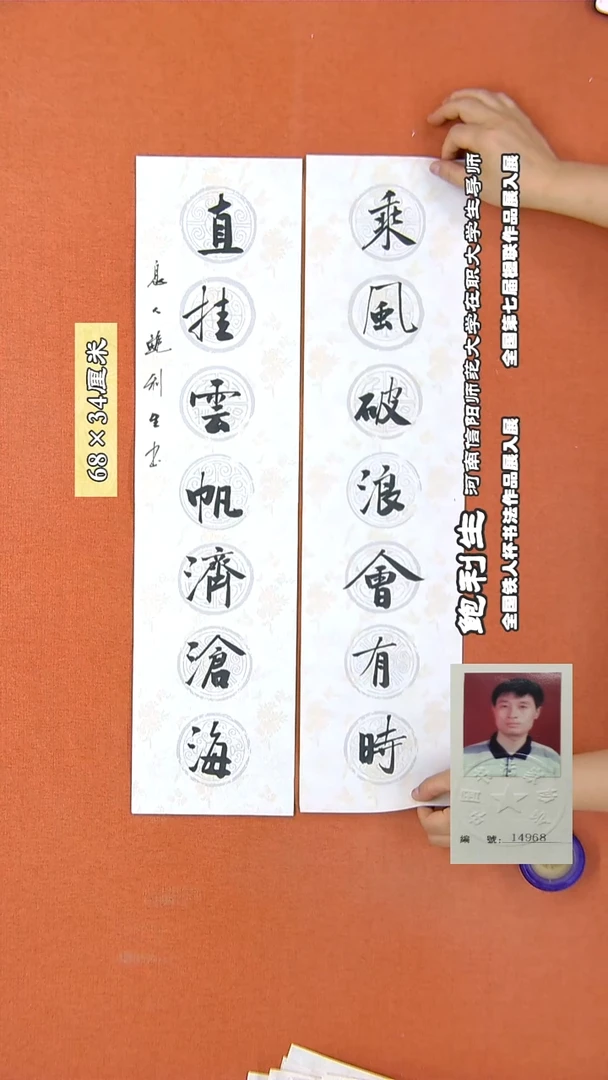 乘風破浪會有時
直挂雲帆濟滄海
鮑利生书
68×34厘米
鲍利生 河南信阳师范大学在职大学生导师
全国铁人杯书法作品展入展 全国第七届楹联作品展入展
編 號: 14968